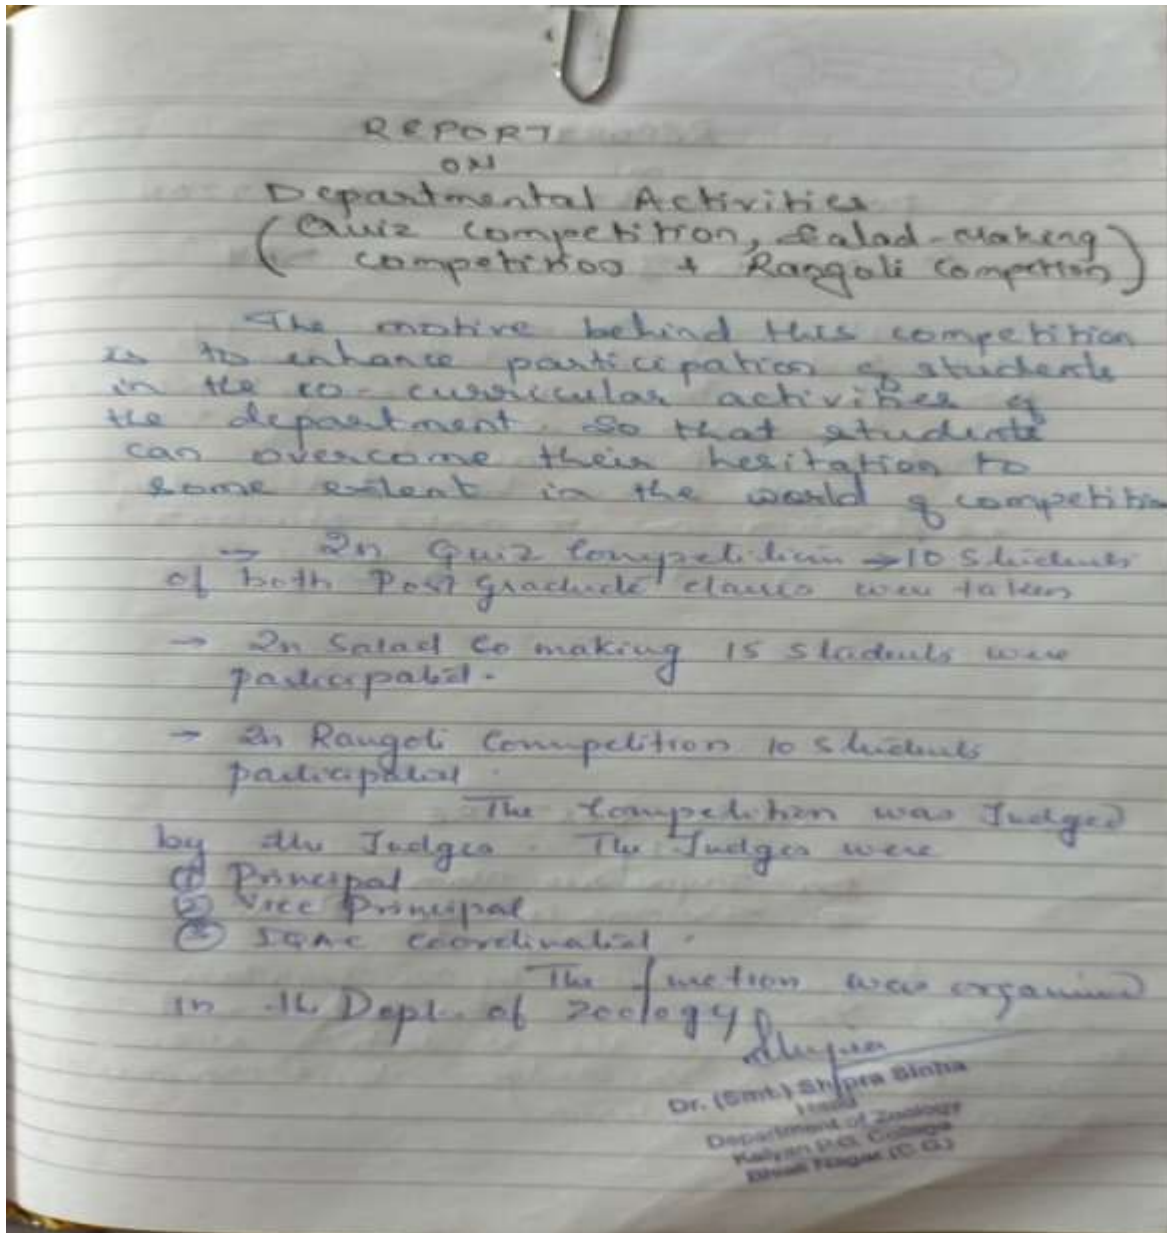 REPORT
ON
Departmental Activities
(Quiz Competition, Salad-Making
Competition + Rangoli Competion)
The motive behind this competition
is to enhance participation of students
in the co-curricular activities of
the department. So that students
can overcome their hesitation to
some extent in the world of competition
→ In Quiz Competition → 10 Students
of both Post Graduate classes were taken
→ In Salad Co making 15 students were
participated.
→ In Rangoli Competition 10 students
participated.
The Competition was Judged
by the Judges. The Judges were
① Principal
② Vice Principal
③ IQAC Coordinator.
The function was organised
in the Dept. of Zoology
Dr. (Smt.) Shipra Sinha
Head
Department of Zoology
Kalyan P.G. College
Bhilai Nagar (C.G.)